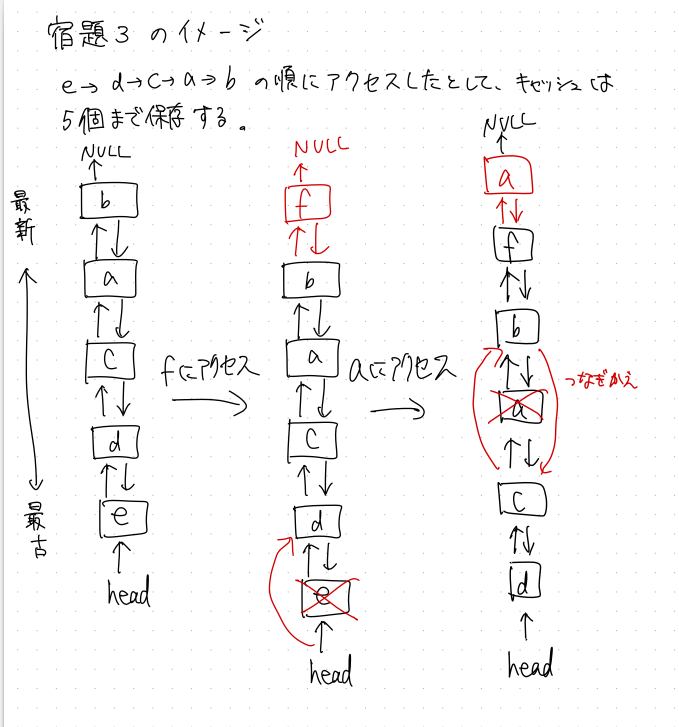 宿題3 のイメージ
e→ d→c→a→b の順にアクセスしたとして、キャッシュは
5個まで保存する。
最新
最古
NULL
b
a
c
d
e
head
fにアクセス
NULL
f
b
a
c
d
e
head
aにアクセス
NULL
a
f
b
a
c
d
head
つなぎかえ